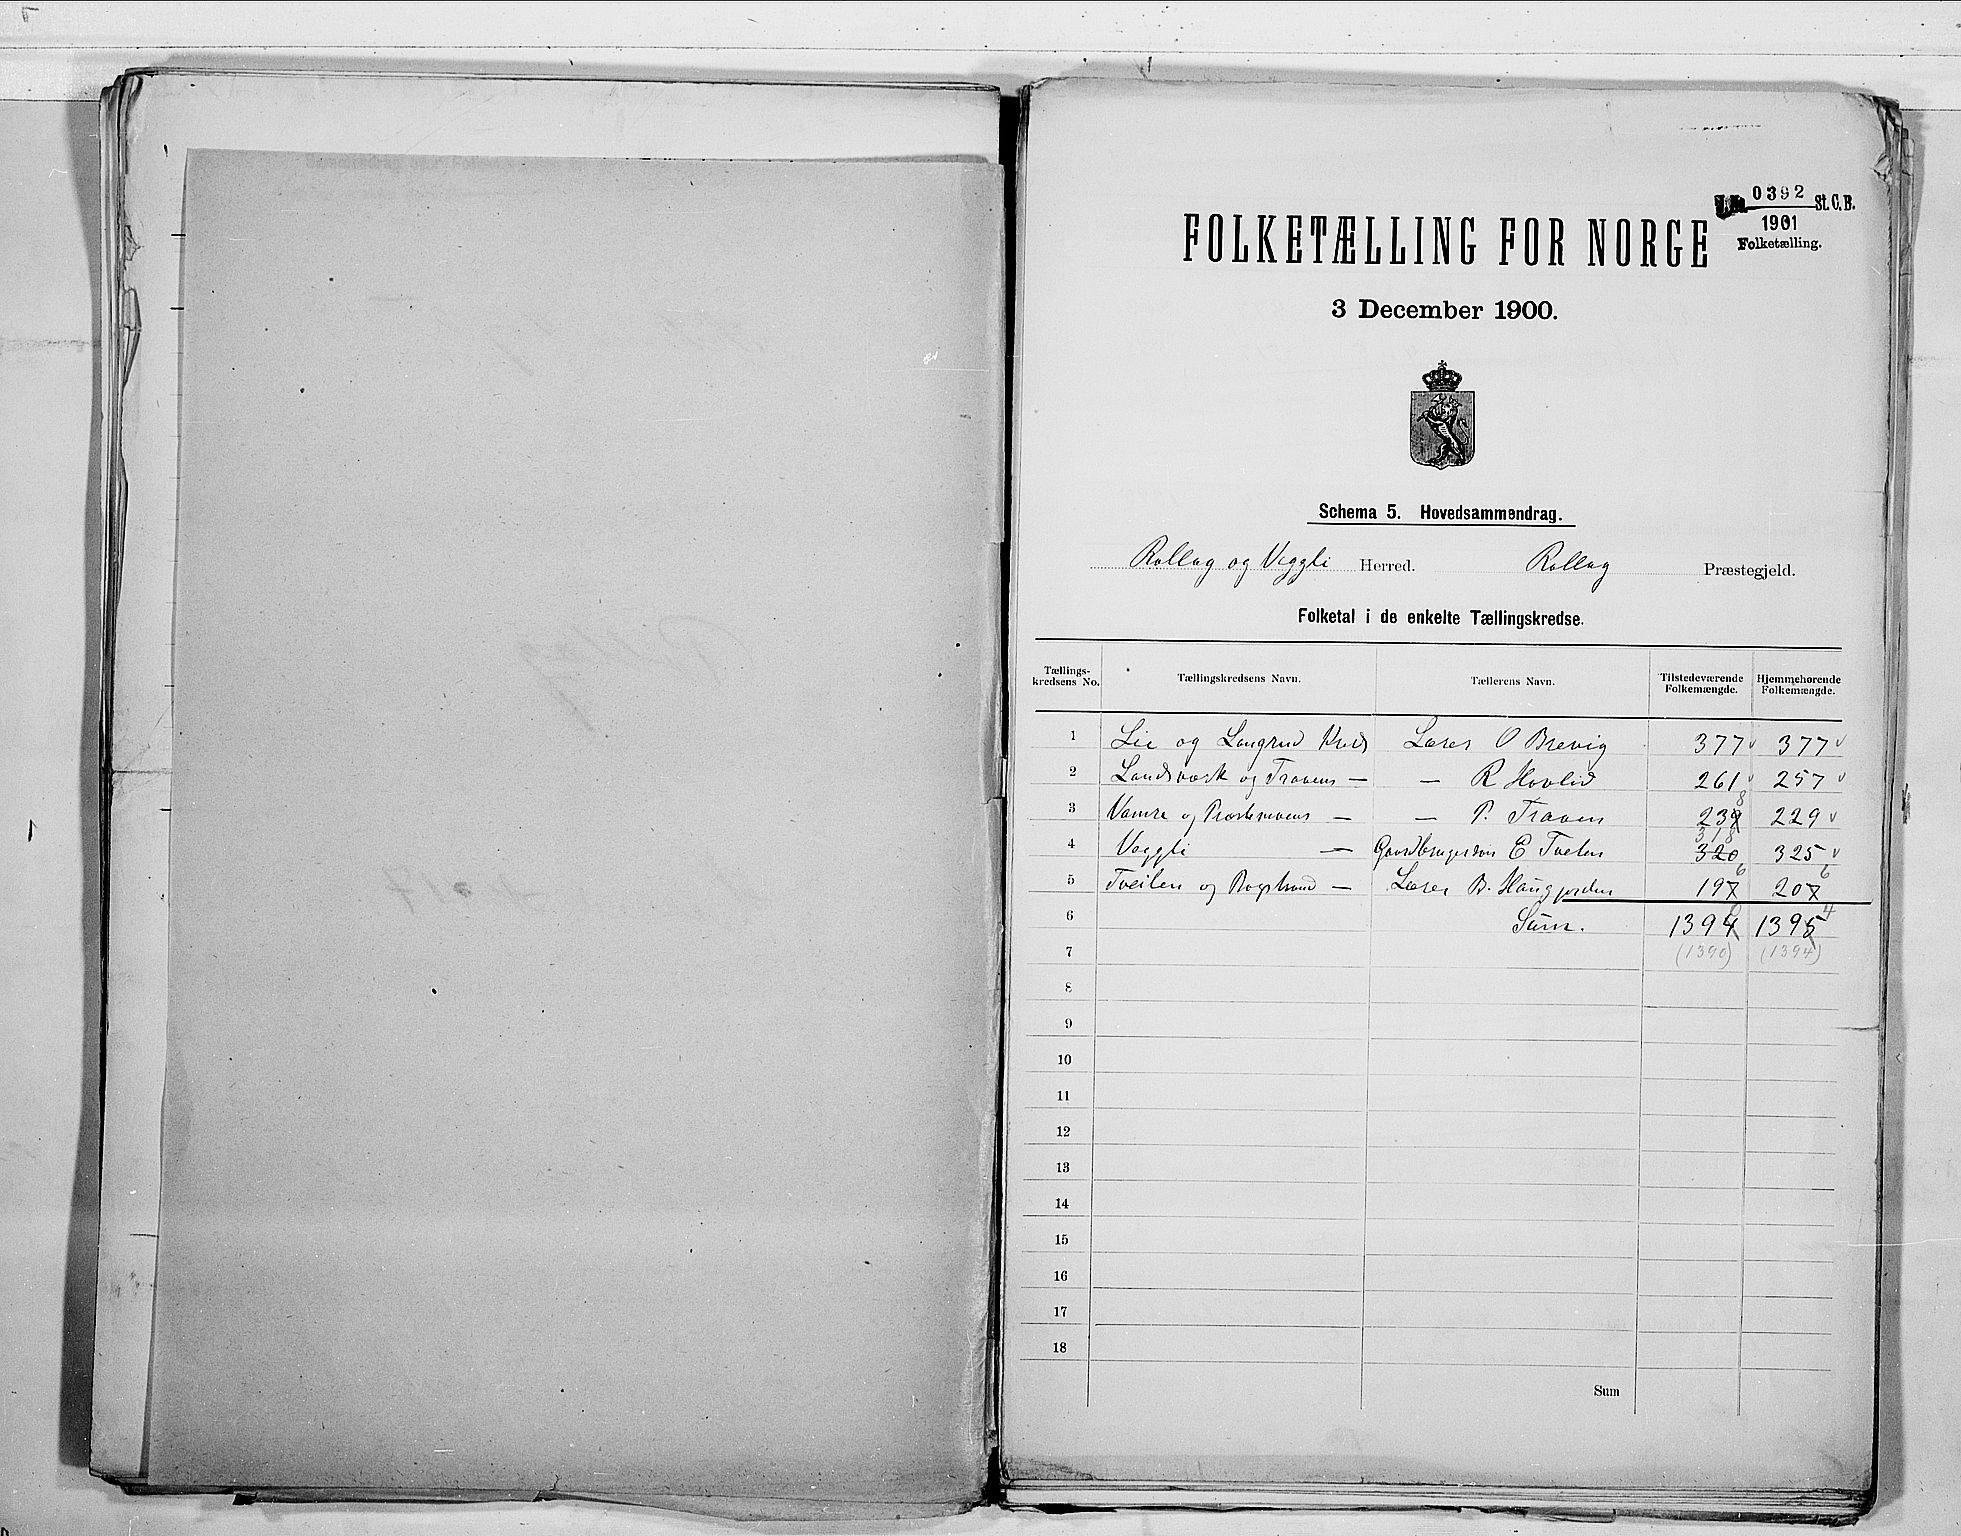 0392
St. C. B.
1901
Folketælling.
FOLKETÆLLING FOR NORGE
3 December 1900.
Schema 5. Hovedsammendrag.
Rollag og Veggli Herred. Rollag Præstegjeld.
Folketal i de enkelte Tællingskredse.
Tællings-kredsens No. Tællingskredsens Navn. Tællerens Navn. Tilstedeværende Folkemængde. Hjemmehørende Folkemængde.
1 Lie og Langrud Kreds Lærer O Brevig 377 377
2 Landsværk og Traaens — — R Hovlid 261 257
8
3 Vamre og Præstemoens — — P. Traaen 239 229
318
4 Veggli — Gaardbrugeren E Tveten 320 325
6 6
5 Tveiten og Rogstrand — Lærer B. Haugjorden 197 207
0 4
6 Sum. 1394 1395
7 (1390) (1394)
8
9
10
11
12
13
14
15
16
17
18
Sum